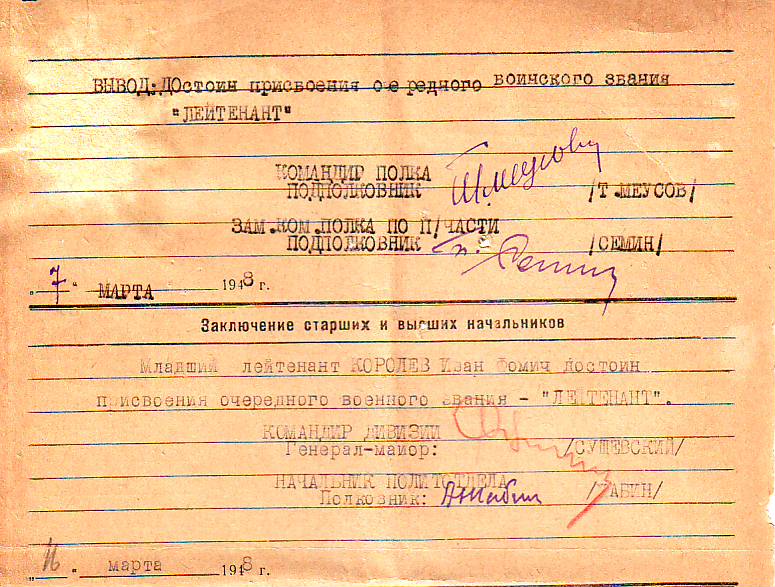 ВЫВОД: ДОстоин присвоения очередного воинского звания
"ЛЕЙТЕНАНТ"
КОМАНДИР ПОЛКА
ПОДПОЛКОВНИК /Т.МЕУСОВ/
ЗАМ.КОМ.ПОЛКА ПО П/ЧАСТИ
ПОДПОЛКОВНИК /СЕМИН/
"7" МАРТА 1948 г.
Заключение старших и высших начальников
Младший лейтенант КОРОЛЕВ Иван Фомич достоин
присвоения очередного военного звания - "ЛЕЙТЕНАНТ".
КОМАНДИР ДИВИЗИИ
Генерал-майор: /СУЩЕВСКИЙ/
НАЧАЛЬНИК ПОЛИТОТДЕЛА
Полковник: /ЖАБИН/
" " марта 1948 г.